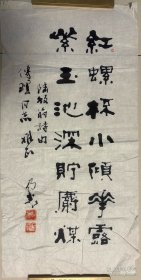 紅螺杯小傾華露
紫玉池深貯麝煤
陸放翁詩句
同志雅正